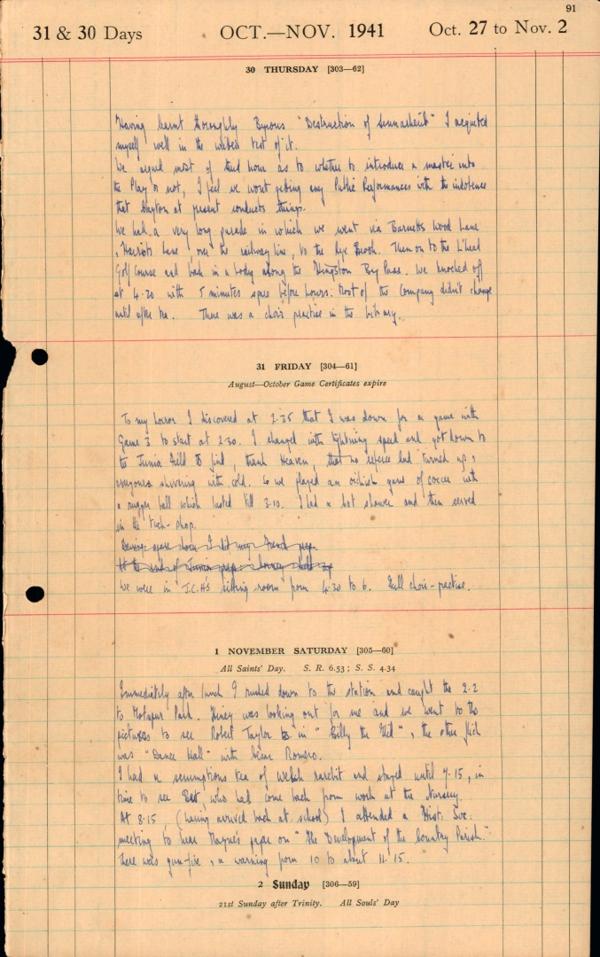 91
31 & 30 Days OCT.—NOV. 1941 Oct. 27 to Nov. 2
30 THURSDAY [303—62]
Having learnt thoroughly Byrons "Destruction of Sennacherib" I acquitted
myself well in the test of it.
We argued most of third hour as to whether to introduce a master into
the Play or not, I feel we wont getting any Public Performances with the indolence
that at present conducts things.
We had a very long parade in which we went via Barnetts Wood Lane
, Harriots Lane, over the railway line, to the Rye Brook. Then on to the L'head
Golf Course and back in a body along the Kingston By Pass. We knocked off
at 4.20 with 5 minutes spare before hours. Most of the Company didn't change
until after tea. There was a choir practice in the Library.
31 FRIDAY [304—61]
August—October Game Certificates expire
To my horror I discovered at 2.25 that I was down for a game with
Game 3 to start at 2.30. I changed with lightning speed and got down to
the Junior Field to find, thank Heaven, that no referee had turned up &
everyone shivering with cold. So we played an oickish game of soccer with
a rugger ball which lasted till 3.10. I had a hot shower and then served
in the tuck-shop.
During spare hour I did my French prep.
At the end of Junior prep.
We were in J.C.H's sitting room from 4.30 to 6. Full choir-practise.
1 NOVEMBER SATURDAY [305—60]
All Saints' Day. S. R. 6.53; S. S. 4.34
Immediately after lunch I rushed down to the station and caught the 2.2
to Motspur Park. was looking out for me and we went to the
pictures to see Robert Taylor in "Billy the Kid", the other flick
was "Dance Hall" with Cesar Romero.
I had a scrumptious tea of welsh rarebit and stayed until 7.15, in
time to see who had come back from work at the Nursery.
At 8.15 (having arrived back at school) I attended a Hist. Soc.
meeting to hear Payne's paper on "The Development of the Country Parish."
There was gun-fire & a warning from 10 to about 11.15.
2 Sunday [306—59]
21st Sunday after Trinity. All Souls' Day